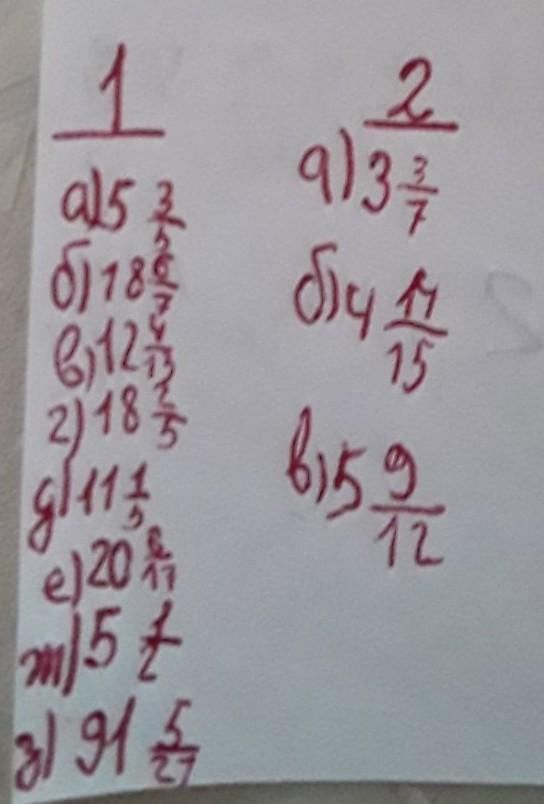 1
а) 5 3/5
б) 18 6/7
в) 12 4/13
г) 18 2/5
д) 11 1/5
е) 20 8/17
ж) 5 1/2
з) 91 5/27
2
а) 3 3/7
б) 4 14/15
в) 5 9/12